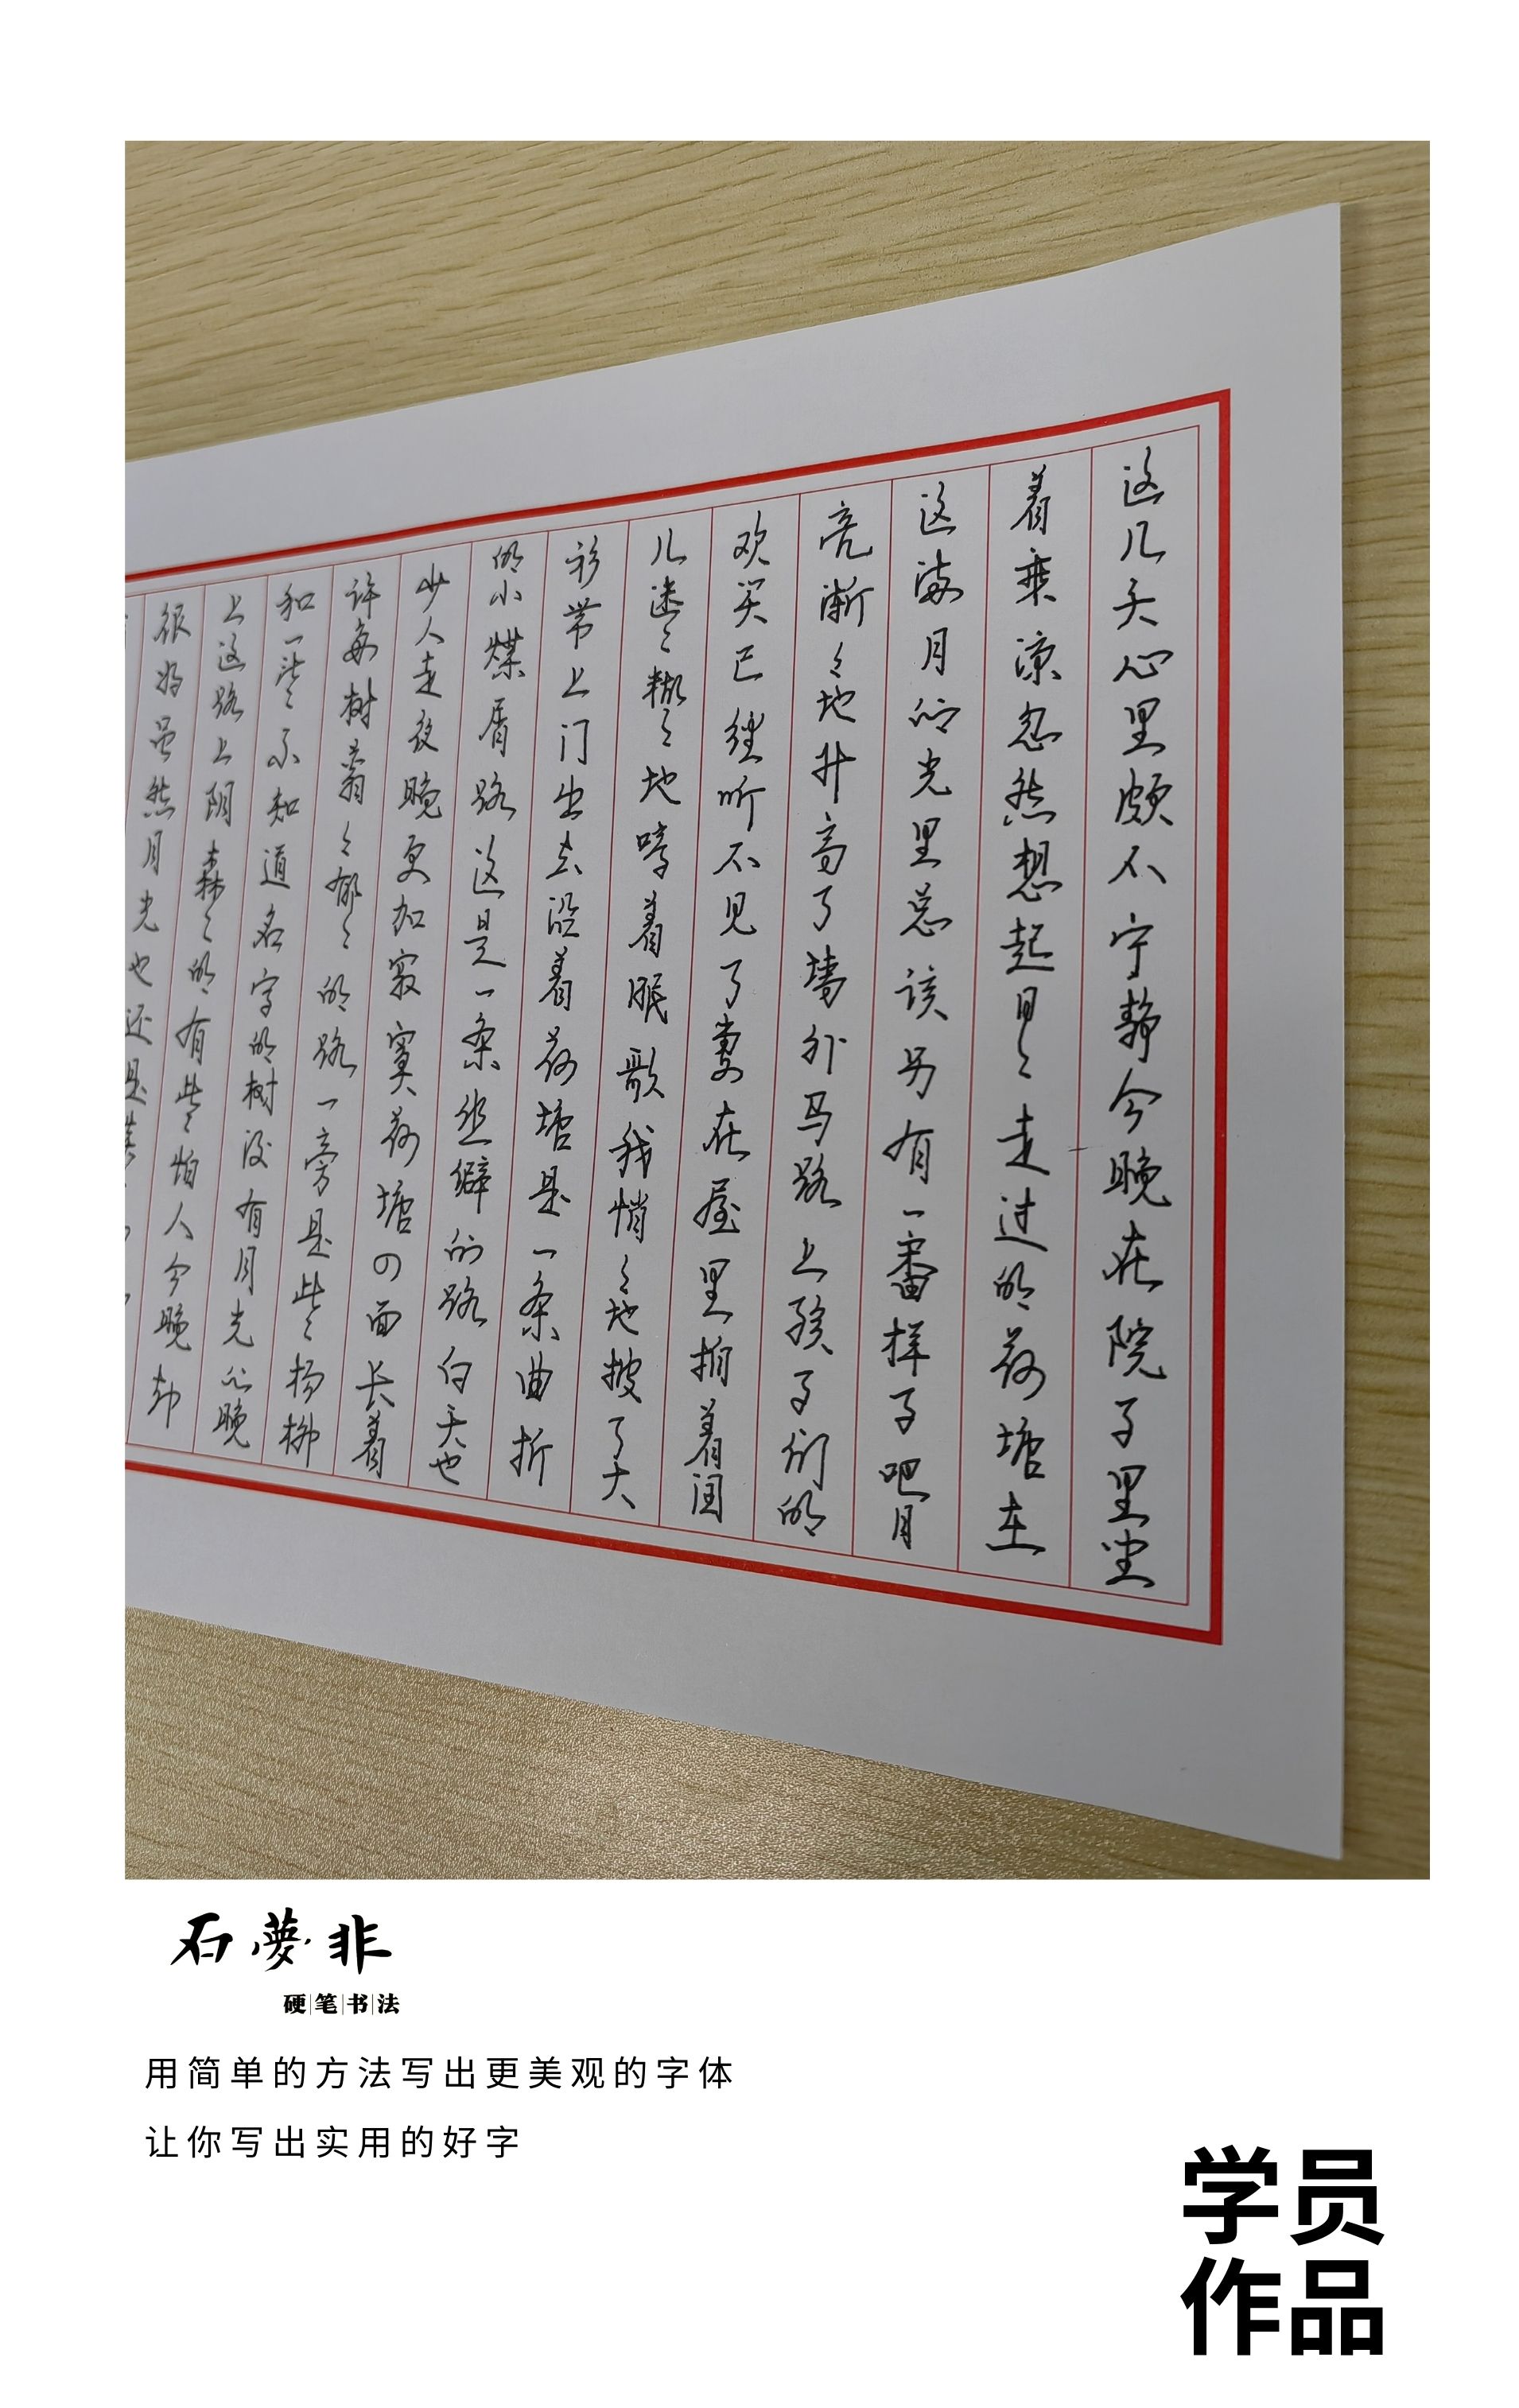 这几天心里颇不宁静今晚在院子里坐
着乘凉忽然想起日々走过的荷塘在
这满月的光里总该另有一番样子吧月
亮渐々地升高了墙外马路上孩子们的
欢笑已经听不见了妻在屋里拍着闰
儿迷々糊々地哼着眠歌我悄々地披了大
衫带上门出去沿着荷塘是一条曲折
的小煤屑路这是一条幽僻的路白天也
少人走夜晚更加寂寞荷塘四面长着
许多树蓊々郁々的路一旁是些杨柳
和一些不知道名字的树没有月光的晚
上这路上阴森々的有些怕人今晚却
很好虽然月光也还是
石夢非
硬笔书法
用简单的方法写出更美观的字体
让你写出实用的好字
学员
作品